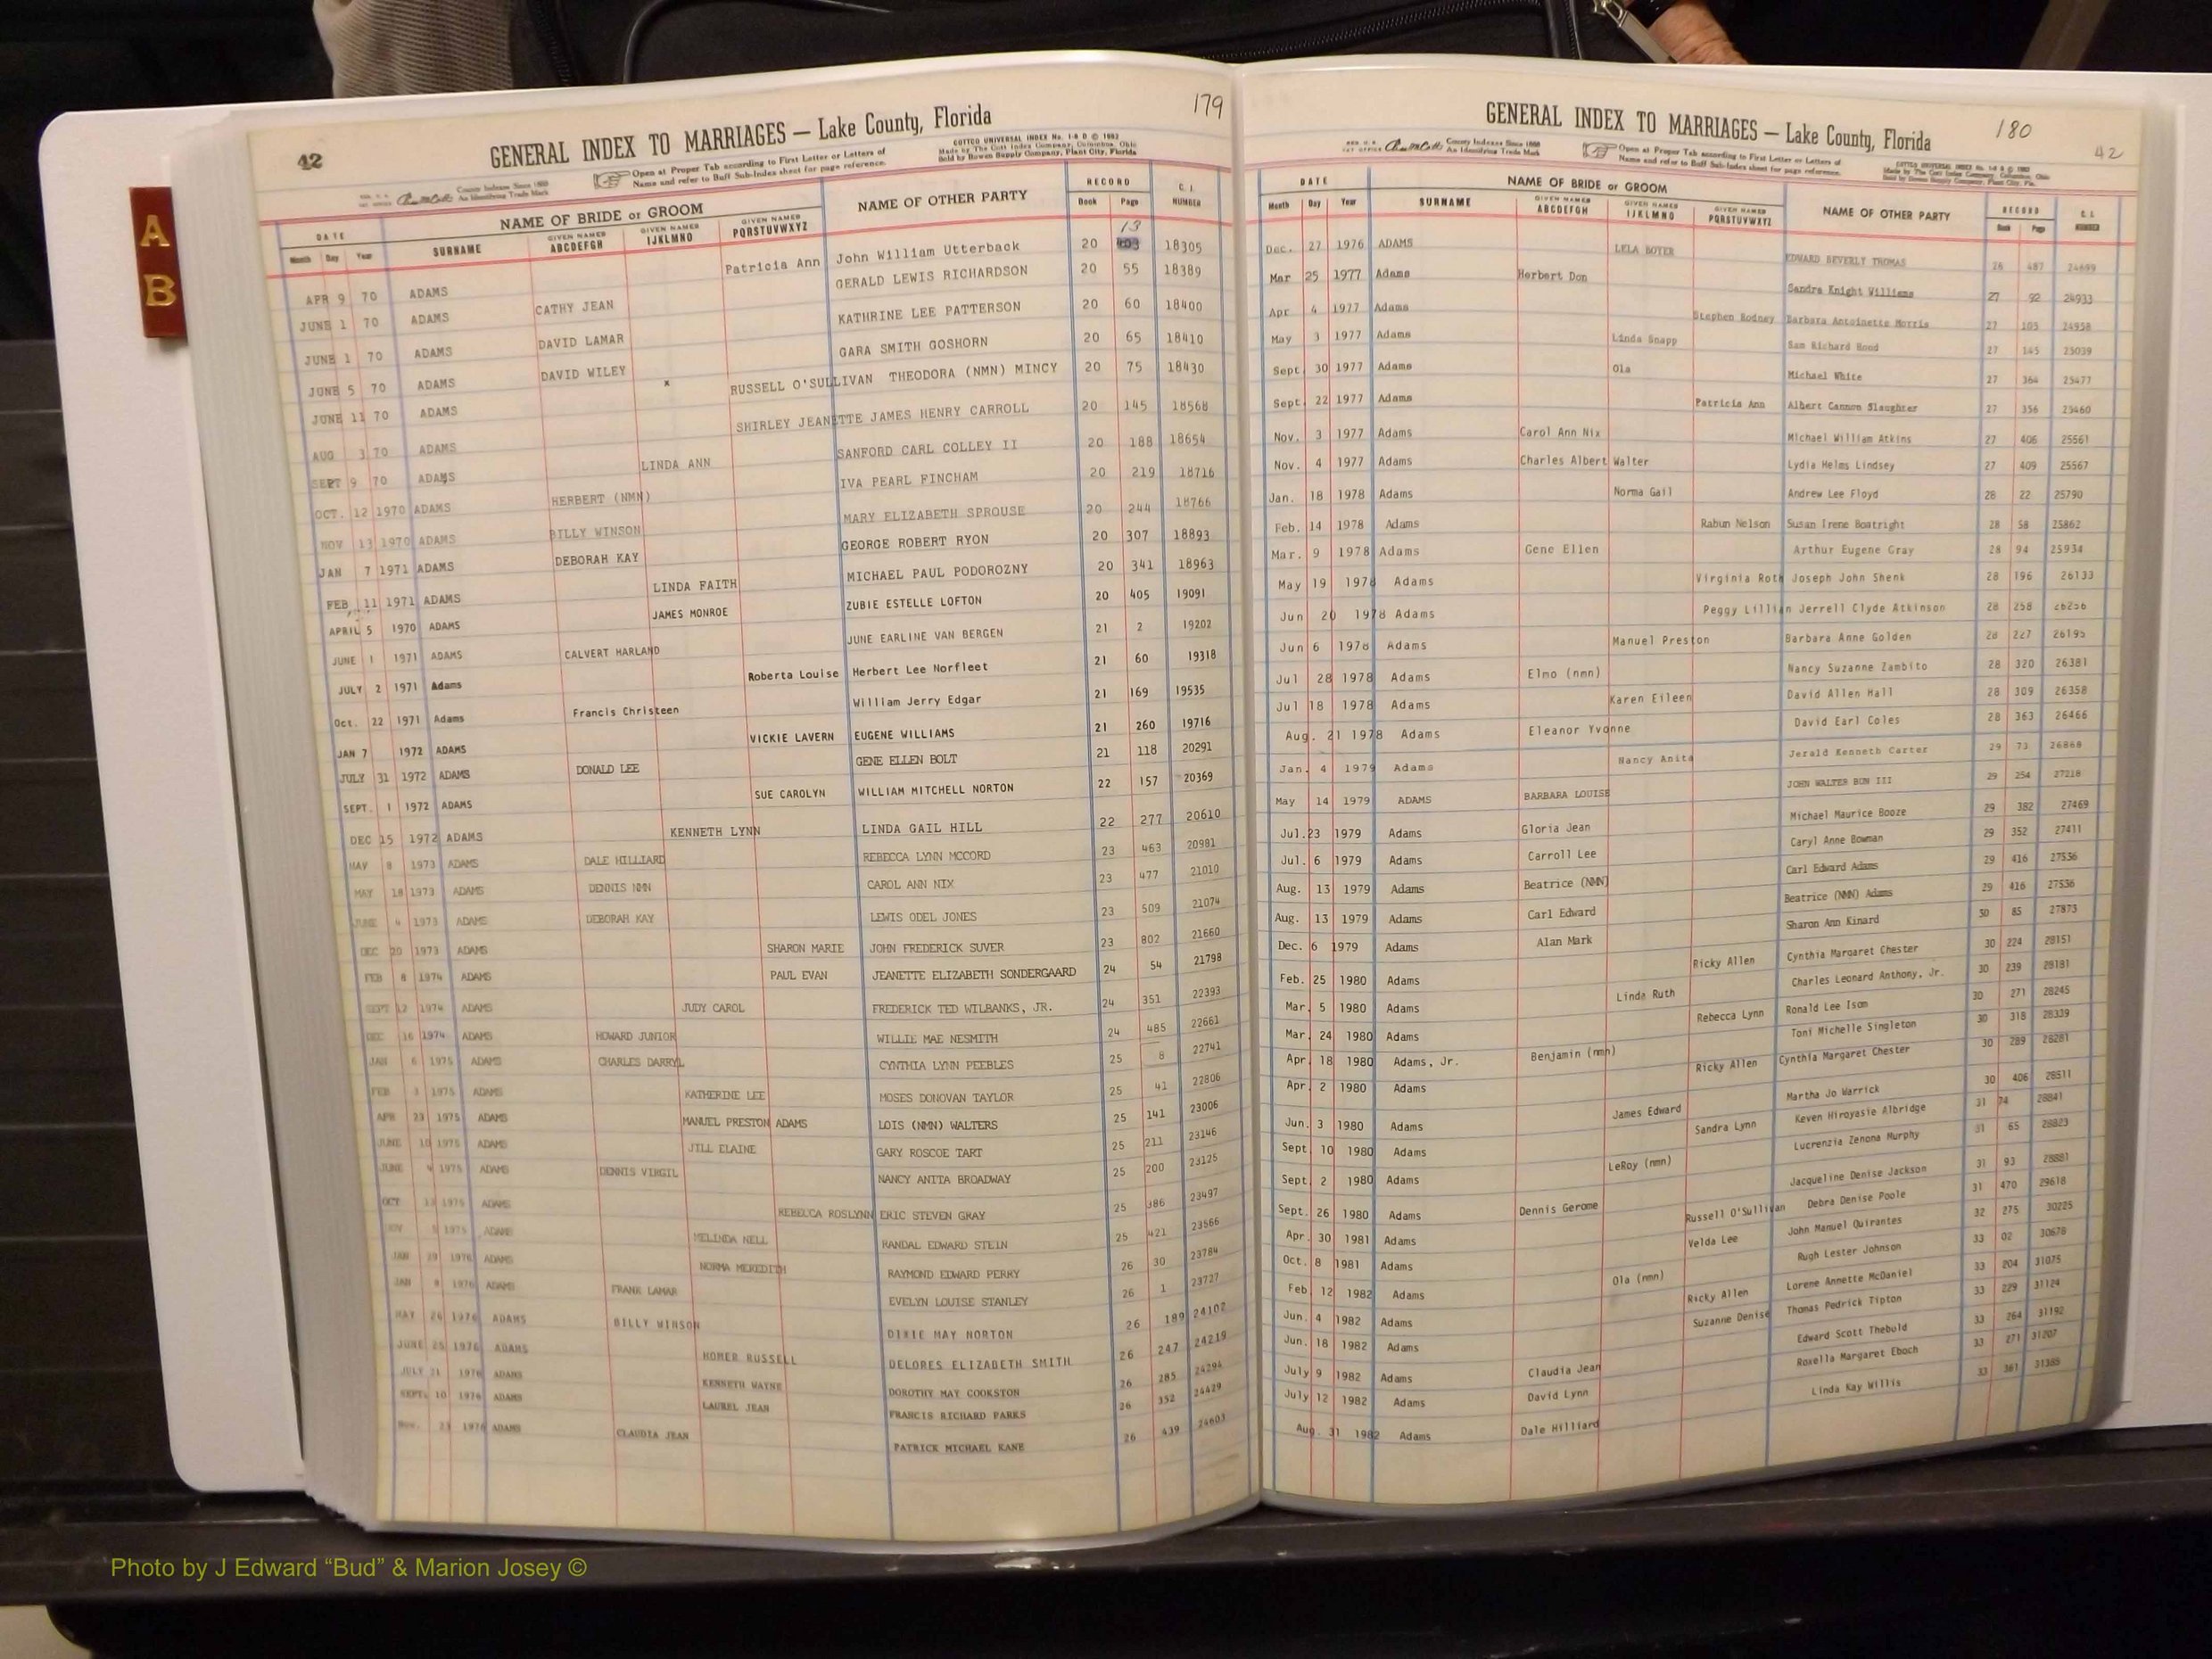 179
42
GENERAL INDEX TO MARRIAGES — Lake County, Florida
County Indexes Since 1888
An Identifying Trade Mark
Open at Proper Tab according to First Letter or Letters of
Name and refer to Buff Sub-Index sheet for page reference.
COTTCO UNIVERSAL INDEX No. 1-8 D © 1962
Made by The Cott Index Company, Columbus, Ohio
Sold by Bowen Supply Company, Plant City, Florida
DATE NAME OF BRIDE or GROOM NAME OF OTHER PARTY RECORD C. I. NUMBER
Month Day Year SURNAME GIVEN NAMES ABCDEFGH GIVEN NAMES IJKLMNO GIVEN NAMES PQRSTUVWXYZ Book Page
13
APR 9 70 ADAMS Patricia Ann John William Utterback 20 18305
JUNE 1 70 ADAMS CATHY JEAN GERALD LEWIS RICHARDSON 20 55 18389
JUNE 1 70 ADAMS DAVID LAMAR KATHRINE LEE PATTERSON 20 60 18400
JUNE 5 70 ADAMS DAVID WILEY GARA SMITH GOSHORN 20 65 18410
JUNE 11 70 ADAMS x RUSSELL O'SULLIVAN THEODORA (NMN) MINCY 20 75 18430
AUG 3 70 ADAMS SHIRLEY JEANETTE JAMES HENRY CARROLL 20 145 18568
SEPT 9 70 ADAMS LINDA ANN SANFORD CARL COLLEY II 20 188 18654
OCT. 12 1970 ADAMS HERBERT (NMN) IVA PEARL FINCHAM 20 219 18716
NOV 13 1970 ADAMS BILLY WINSON MARY ELIZABETH SPROUSE 20 244 18766
JAN 7 1971 ADAMS DEBORAH KAY GEORGE ROBERT RYON 20 307 18893
FEB 11 1971 ADAMS LINDA FAITH MICHAEL PAUL PODOROZNY 20 341 18963
APRIL 5 1970 ADAMS JAMES MONROE ZUBIE ESTELLE LOFTON 20 405 19091
JUNE 1 1971 ADAMS CALVERT HARLAND JUNE EARLINE VAN BERGEN 21 2 19202
JULY 2 1971 Adams Roberta Louise Herbert Lee Norfleet 21 60 19318
Oct. 22 1971 Adams Francis Christeen William Jerry Edgar 21 169 19535
JAN 7 1972 ADAMS VICKIE LAVERN EUGENE WILLIAMS 21 260 19716
JULY 31 1972 ADAMS DONALD LEE GENE ELLEN BOLT 21 118 20291
SEPT. 1 1972 ADAMS SUE CAROLYN WILLIAM MITCHELL NORTON 22 157 20369
DEC 15 1972 ADAMS KENNETH LYNN LINDA GAIL HILL 22 277 20610
MAY 8 1973 ADAMS DALE HILLIARD REBECCA LYNN MCCORD 23 463 20981
MAY 18 1973 ADAMS DENNIS NMN CAROL ANN NIX 23 477 21010
JUNE 4 1973 ADAMS DEBORAH KAY LEWIS ODEL JONES 23 509 21074
DEC 20 1973 ADAMS SHARON MARIE JOHN FREDERICK SUVER 23 802 21660
FEB 8 1974 ADAMS PAUL EVAN JEANETTE ELIZABETH SONDERGAARD 24 54 21798
SEPT 12 1974 ADAMS JUDY CAROL FREDERICK TED WILBANKS, JR. 24 351 22393
DEC 16 1974 ADAMS HOWARD JUNIOR WILLIE MAE NESMITH 24 485 22661
JAN 6 1975 ADAMS CHARLES DARRYL CYNTHIA LYNN PEEBLES 25 8 22741
FEB 3 1975 ADAMS KATHERINE LEE MOSES DONOVAN TAYLOR 25 41 22806
APR 23 1975 ADAMS MANUEL PRESTON ADAMS LOIS (NMN) WALTERS 25 141 23006
JUNE 10 1975 ADAMS JILL ELAINE GARY ROSCOE TART 25 211 23146
JUNE 4 1975 ADAMS DENNIS VIRGIL NANCY ANITA BROADWAY 25 200 23125
OCT 13 1975 ADAMS REBECCA ROSLYNN ERIC STEVEN GRAY 25 386 23497
NOV 5 1975 ADAMS MELINDA NELL RANDAL EDWARD STEIN 25 421 23566
JAN 29 1976 ADAMS NORMA MEREDITH RAYMOND EDWARD PERRY 26 30 23784
JAN 9 1976 ADAMS FRANK LAMAR EVELYN LOUISE STANLEY 26 1 23727
MAY 26 1976 ADAMS BILLY WINSON DIXIE MAY NORTON 26 189 24102
JUNE 25 1976 ADAMS HOMER RUSSELL DELORES ELIZABETH SMITH 26 247 24219
JULY 21 1976 ADAMS KENNETH WAYNE DOROTHY MAY COOKSTON 26 285 24294
SEPT. 10 1976 ADAMS LAUREL JEAN FRANCIS RICHARD PARKS 26 352 24429
Nov. 23 1976 ADAMS CLAUDIA JEAN PATRICK MICHAEL KANE 26 439 24603
180
42
GENERAL INDEX TO MARRIAGES — Lake County, Florida
County Indexes Since 1888
An Identifying Trade Mark
Open at Proper Tab according to First Letter or Letters of
Name and refer to Buff Sub-Index sheet for page reference.
COTTCO UNIVERSAL INDEX No. 1-8 D © 1962
Made by The Cott Index Company, Columbus, Ohio
Sold by Bowen Supply Company, Plant City, Fla.
DATE NAME OF BRIDE or GROOM NAME OF OTHER PARTY RECORD C. I. NUMBER
Month Day Year SURNAME GIVEN NAMES ABCDEFGH GIVEN NAMES IJKLMNO GIVEN NAMES PQRSTUVWXYZ Book Page
Dec. 27 1976 ADAMS LELA BOYER EDWARD BEVERLY THOMAS 26 487 24699
Mar 25 1977 Adams Herbert Don Sandra Knight Williams 27 92 24933
Apr 4 1977 Adams Stephen Rodney Barbara Antoinette Morris 27 105 24958
May 3 1977 Adams Linda Snapp Sam Richard Hood 27 145 25039
Sept 30 1977 Adams Ola Michael White 27 364 25477
Sept. 22 1977 Adams Patricia Ann Albert Cannon Slaughter 27 356 25460
Nov. 3 1977 Adams Carol Ann Nix Michael William Atkins 27 406 25561
Nov. 4 1977 Adams Charles Albert Walter Lydia Helms Lindsey 27 409 25567
Jan. 18 1978 Adams Norma Gail Andrew Lee Floyd 28 22 25790
Feb. 14 1978 Adams Rabun Nelson Susan Irene Boatright 28 58 25862
Mar. 9 1978 Adams Gene Ellen Arthur Eugene Gray 28 94 25934
May 19 1978 Adams Virginia Roth Joseph John Shenk 28 196 26133
Jun 20 1978 Adams Peggy Lillian Jerrell Clyde Atkinson 28 258 26256
Jun 6 1978 Adams Manuel Preston Barbara Anne Golden 28 227 26195
Jul 28 1978 Adams Elmo (nmn) Nancy Suzanne Zambito 28 320 26381
Jul 18 1978 Adams Karen Eileen David Allen Hall 28 309 26358
Aug. 21 1978 Adams Eleanor Yvonne David Earl Coles 28 363 26466
Jan. 4 1979 Adams Nancy Anita Jerald Kenneth Carter 29 73 26868
May 14 1979 ADAMS BARBARA LOUISE JOHN WALTER BON III 29 254 27218
Jul. 23 1979 Adams Gloria Jean Michael Maurice Booze 29 382 27469
Jul. 6 1979 Adams Carroll Lee Caryl Anne Bowman 29 352 27411
Aug. 13 1979 Adams Beatrice (NMN) Carl Edward Adams 29 416 27536
Aug. 13 1979 Adams Carl Edward Beatrice (NMN) Adams 29 416 27536
Dec. 6 1979 Adams Alan Mark Sharon Ann Kinard 30 85 27873
Feb. 25 1980 Adams Ricky Allen Cynthia Margaret Chester 30 224 28151
Mar. 5 1980 Adams Linda Ruth Charles Leonard Anthony, Jr. 30 239 28181
Mar. 24 1980 Adams Rebecca Lynn Ronald Lee Isom 30 271 28245
Apr. 18 1980 Adams, Jr. Benjamin (nmn) Toni Michelle Singleton 30 318 28339
Apr. 2 1980 Adams Ricky Allen Cynthia Margaret Chester 30 289 28281
Jun. 3 1980 Adams James Edward Martha Jo Warrick 30 406 28511
Sept. 10 1980 Adams Sandra Lynn Keven Hiroyasie Albridge 31 74 28841
Sept. 2 1980 Adams LeRoy (nmn) Lucrenzia Zenona Murphy 31 65 28823
Sept. 26 1980 Adams Dennis Gerome Jacqueline Denise Jackson 31 93 28881
Apr. 30 1981 Adams Russell O'Sullivan Debra Denise Poole 31 470 29618
Oct. 8 1981 Adams Velda Lee John Manuel Quirantes 32 275 30225
Feb 12 1982 Adams Ola (nmn) Rugh Lester Johnson 33 02 30678
Jun. 4 1982 Adams Ricky Allen Lorene Annette McDaniel 33 204 31075
Jun. 18 1982 Adams Suzanne Denise Thomas Pedrick Tipton 33 229 31124
July 9 1982 Adams Claudia Jean Edward Scott Thebold 33 264 31192
July 12 1982 Adams David Lynn Roxella Margaret Eboch 33 271 31207
Aug. 31 1982 Adams Dale Hilliard Linda Kay Willis 33 361 31385
A
B
Photo by J Edward “Bud” & Marion Josey ©